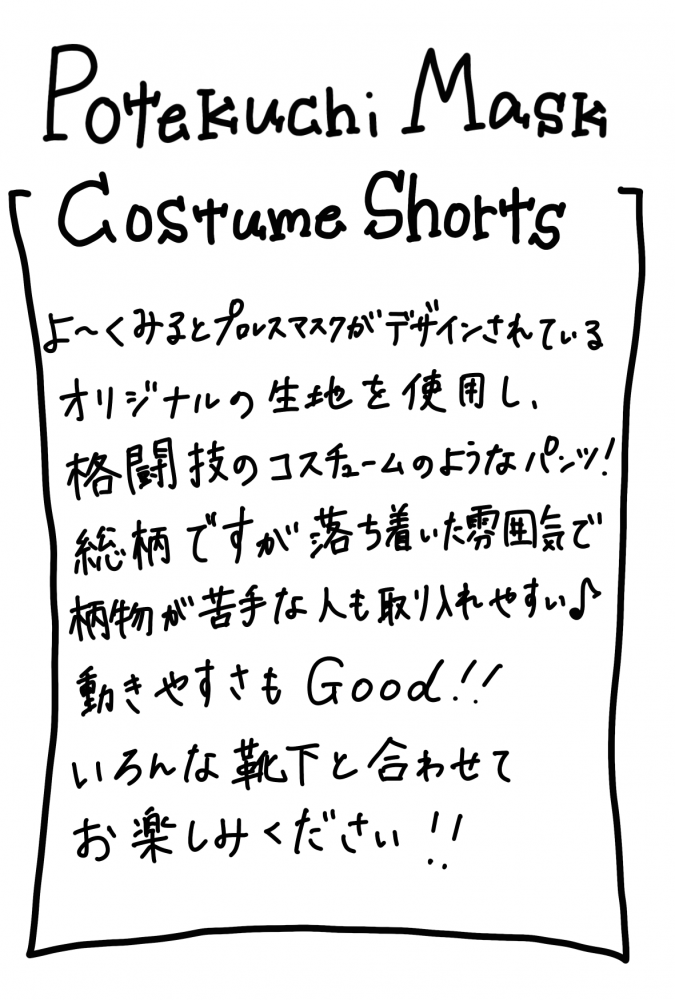 Potekuchi Mask
Costume Shorts
よ〜くみるとプロレスマスクがデザインされている
オリジナルの生地を使用し、
格闘技のコスチュームのようなパンツ!
総柄ですが落ち着いた雰囲気で
柄物が苦手な人も取り入れやすい♪
動きやすさも Good!!
いろんな靴下と合わせて
お楽しみください!!